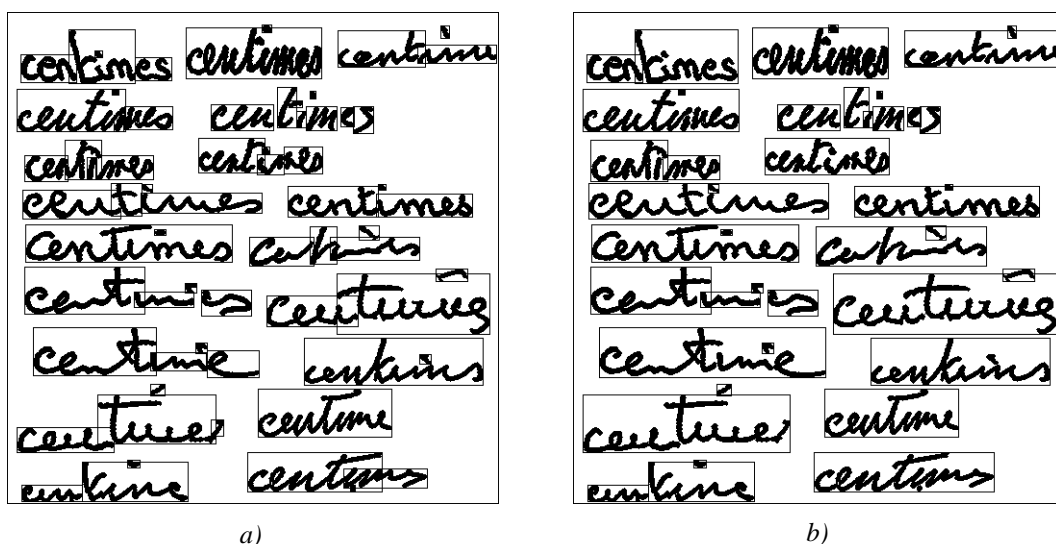 centimes centimes centime
centimes centimes
centimes centimes
centimes centimes
Centimes
centimes centimes
centime centimes
centimes centime
centime centims
a)
centimes centimes centime
centimes centimes
centimes centimes
centimes centimes
Centimes
centimes centimes
centime centimes
centimes centime
centime centims
b)